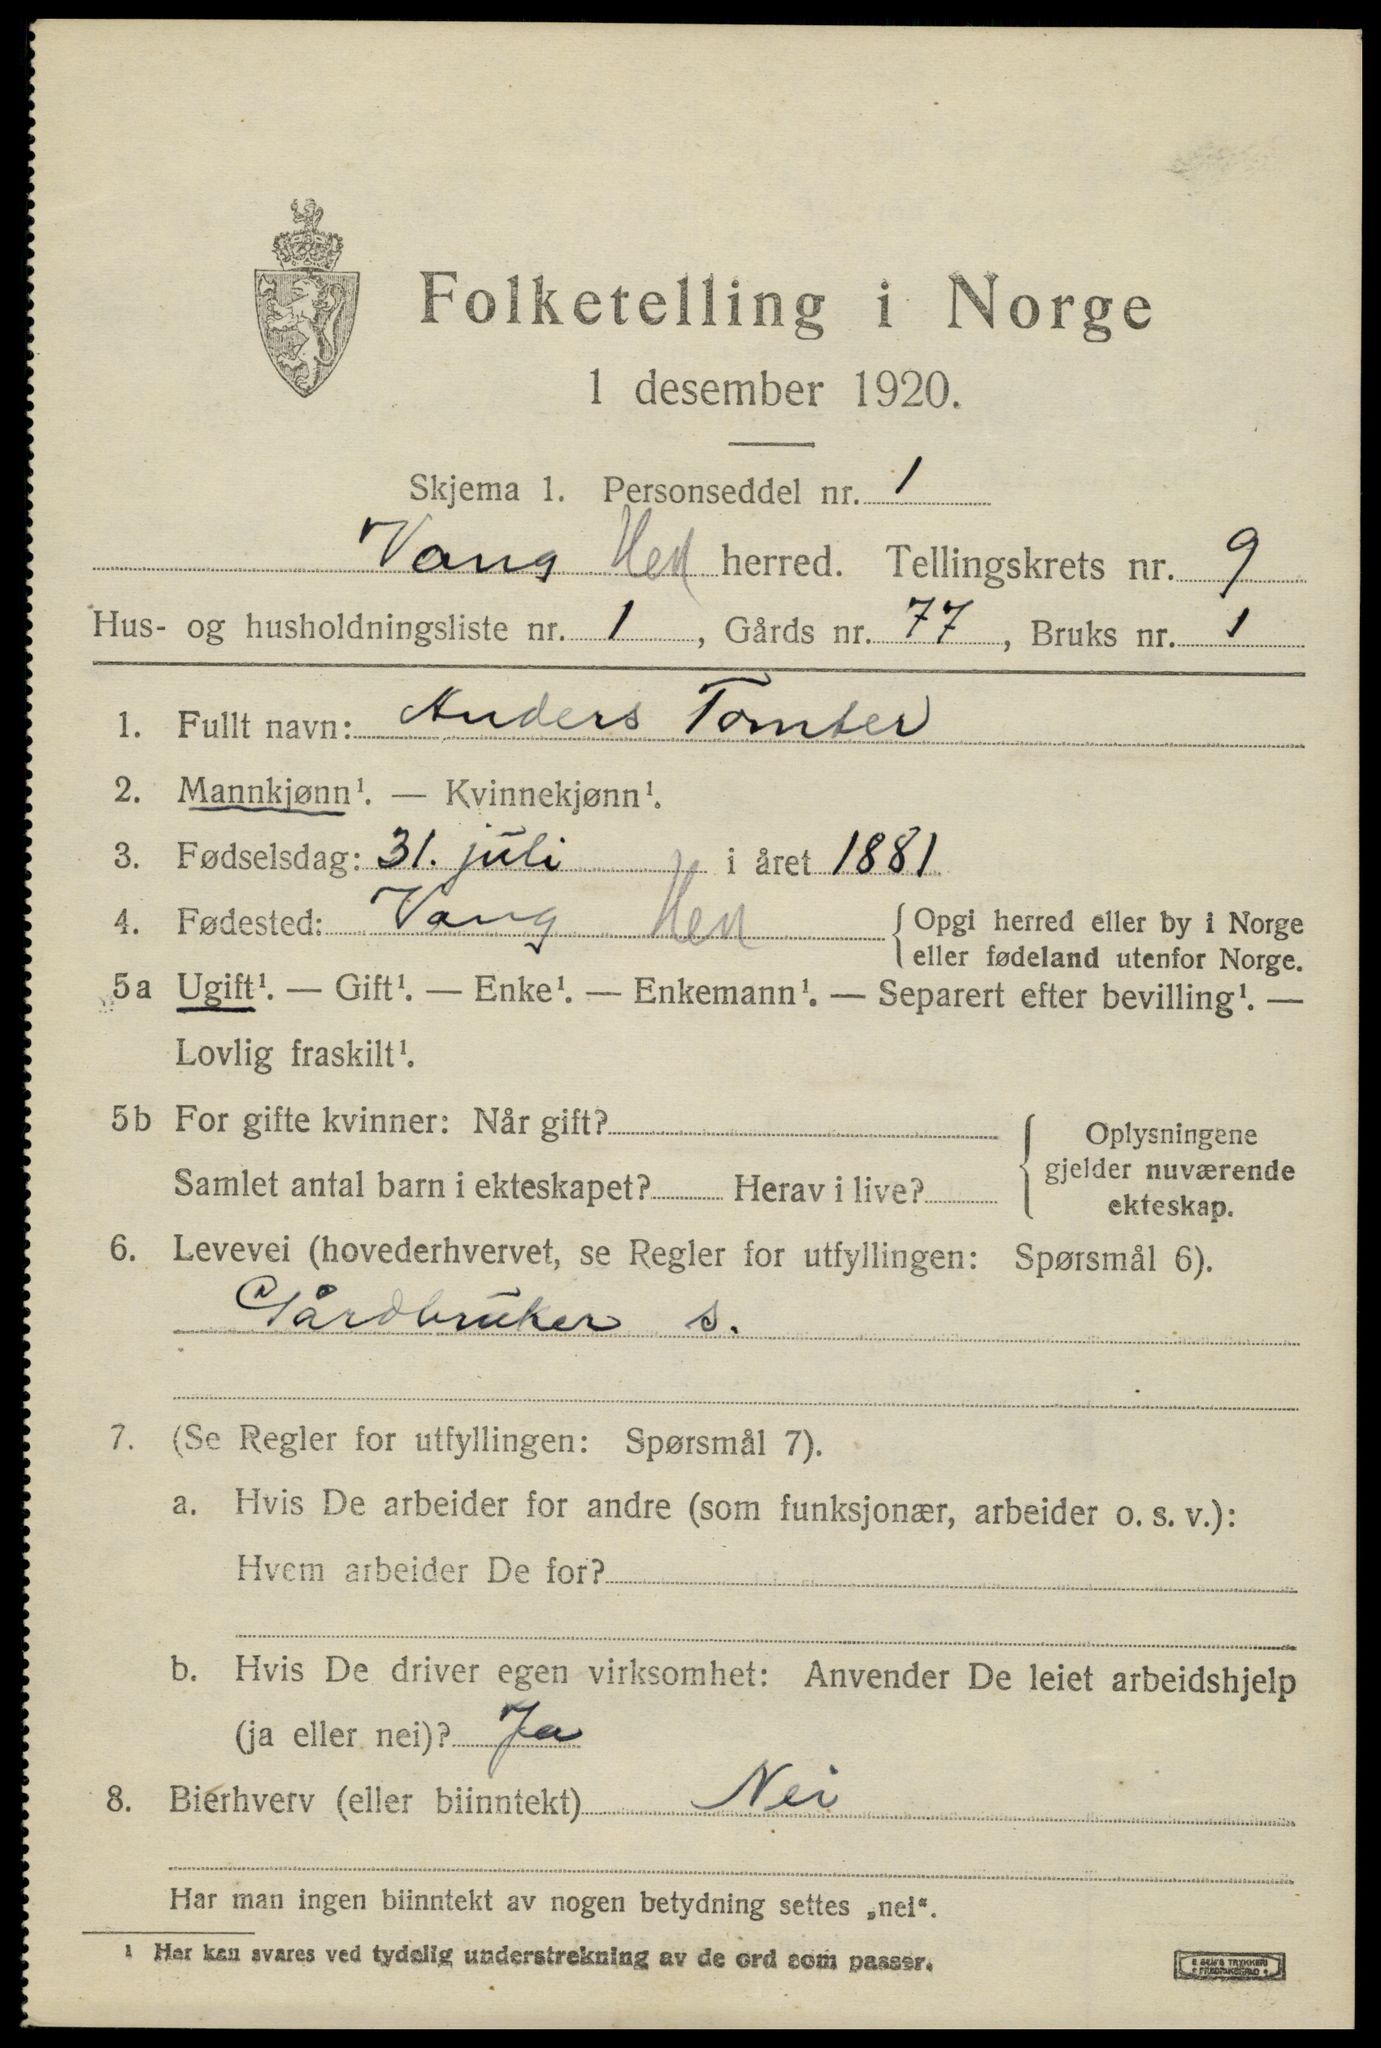 Folketelling i Norge
1 desember 1920.
Skjema 1. Personseddel nr. 1
Vang Hed herred. Tellingskrets nr. 9
Hus- og husholdningsliste nr. 1, Gårds nr. 77, Bruks nr. 1
1. Fullt navn: Anders Tomter
2. Mannkjønn¹. — Kvinnekjønn¹.
3. Fødselsdag: 31. juli i året 1881
4. Fødested: Vang Hed { Opgi herred eller by i Norge
eller fødeland utenfor Norge.
5a Ugift¹. — Gift¹. — Enke¹. — Enkemann¹. — Separert efter bevilling¹. —
Lovlig fraskilt¹.
5b For gifte kvinner: Når gift?
Samlet antal barn i ekteskapet? Herav i live?
{ Oplysningene
gjelder nuværende
ekteskap.
6. Levevei (hovederhvervet, se Regler for utfyllingen: Spørsmål 6).
Gårdbruker s.
7. (Se Regler for utfyllingen: Spørsmål 7).
a. Hvis De arbeider for andre (som funksjonær, arbeider o. s. v.):
Hvem arbeider De for?
b. Hvis De driver egen virksomhet: Anvender De leiet arbeidshjelp
(ja eller nei)? Ja
8. Bierhverv (eller biinntekt) Nei
Har man ingen biinntekt av nogen betydning settes „nei“.
¹ Her kan svares ved tydelig understrekning av de ord som passer.